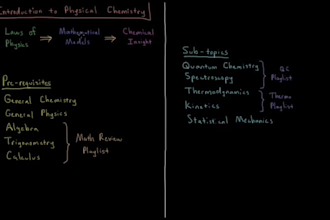 Introduction to Physical Chemistry
Laws of Physics ⇒ Mathematical Models ⇒ Chemical Insight
Pre-requisites
General Chemistry
General Physics
Algebra
Trigonometry
Calculus
Math Review Playlist
Sub-topics
Quantum Chemistry
Spectroscopy
QC Playlist
Thermodynamics
Kinetics
Thermo Playlist
Statistical Mechanics